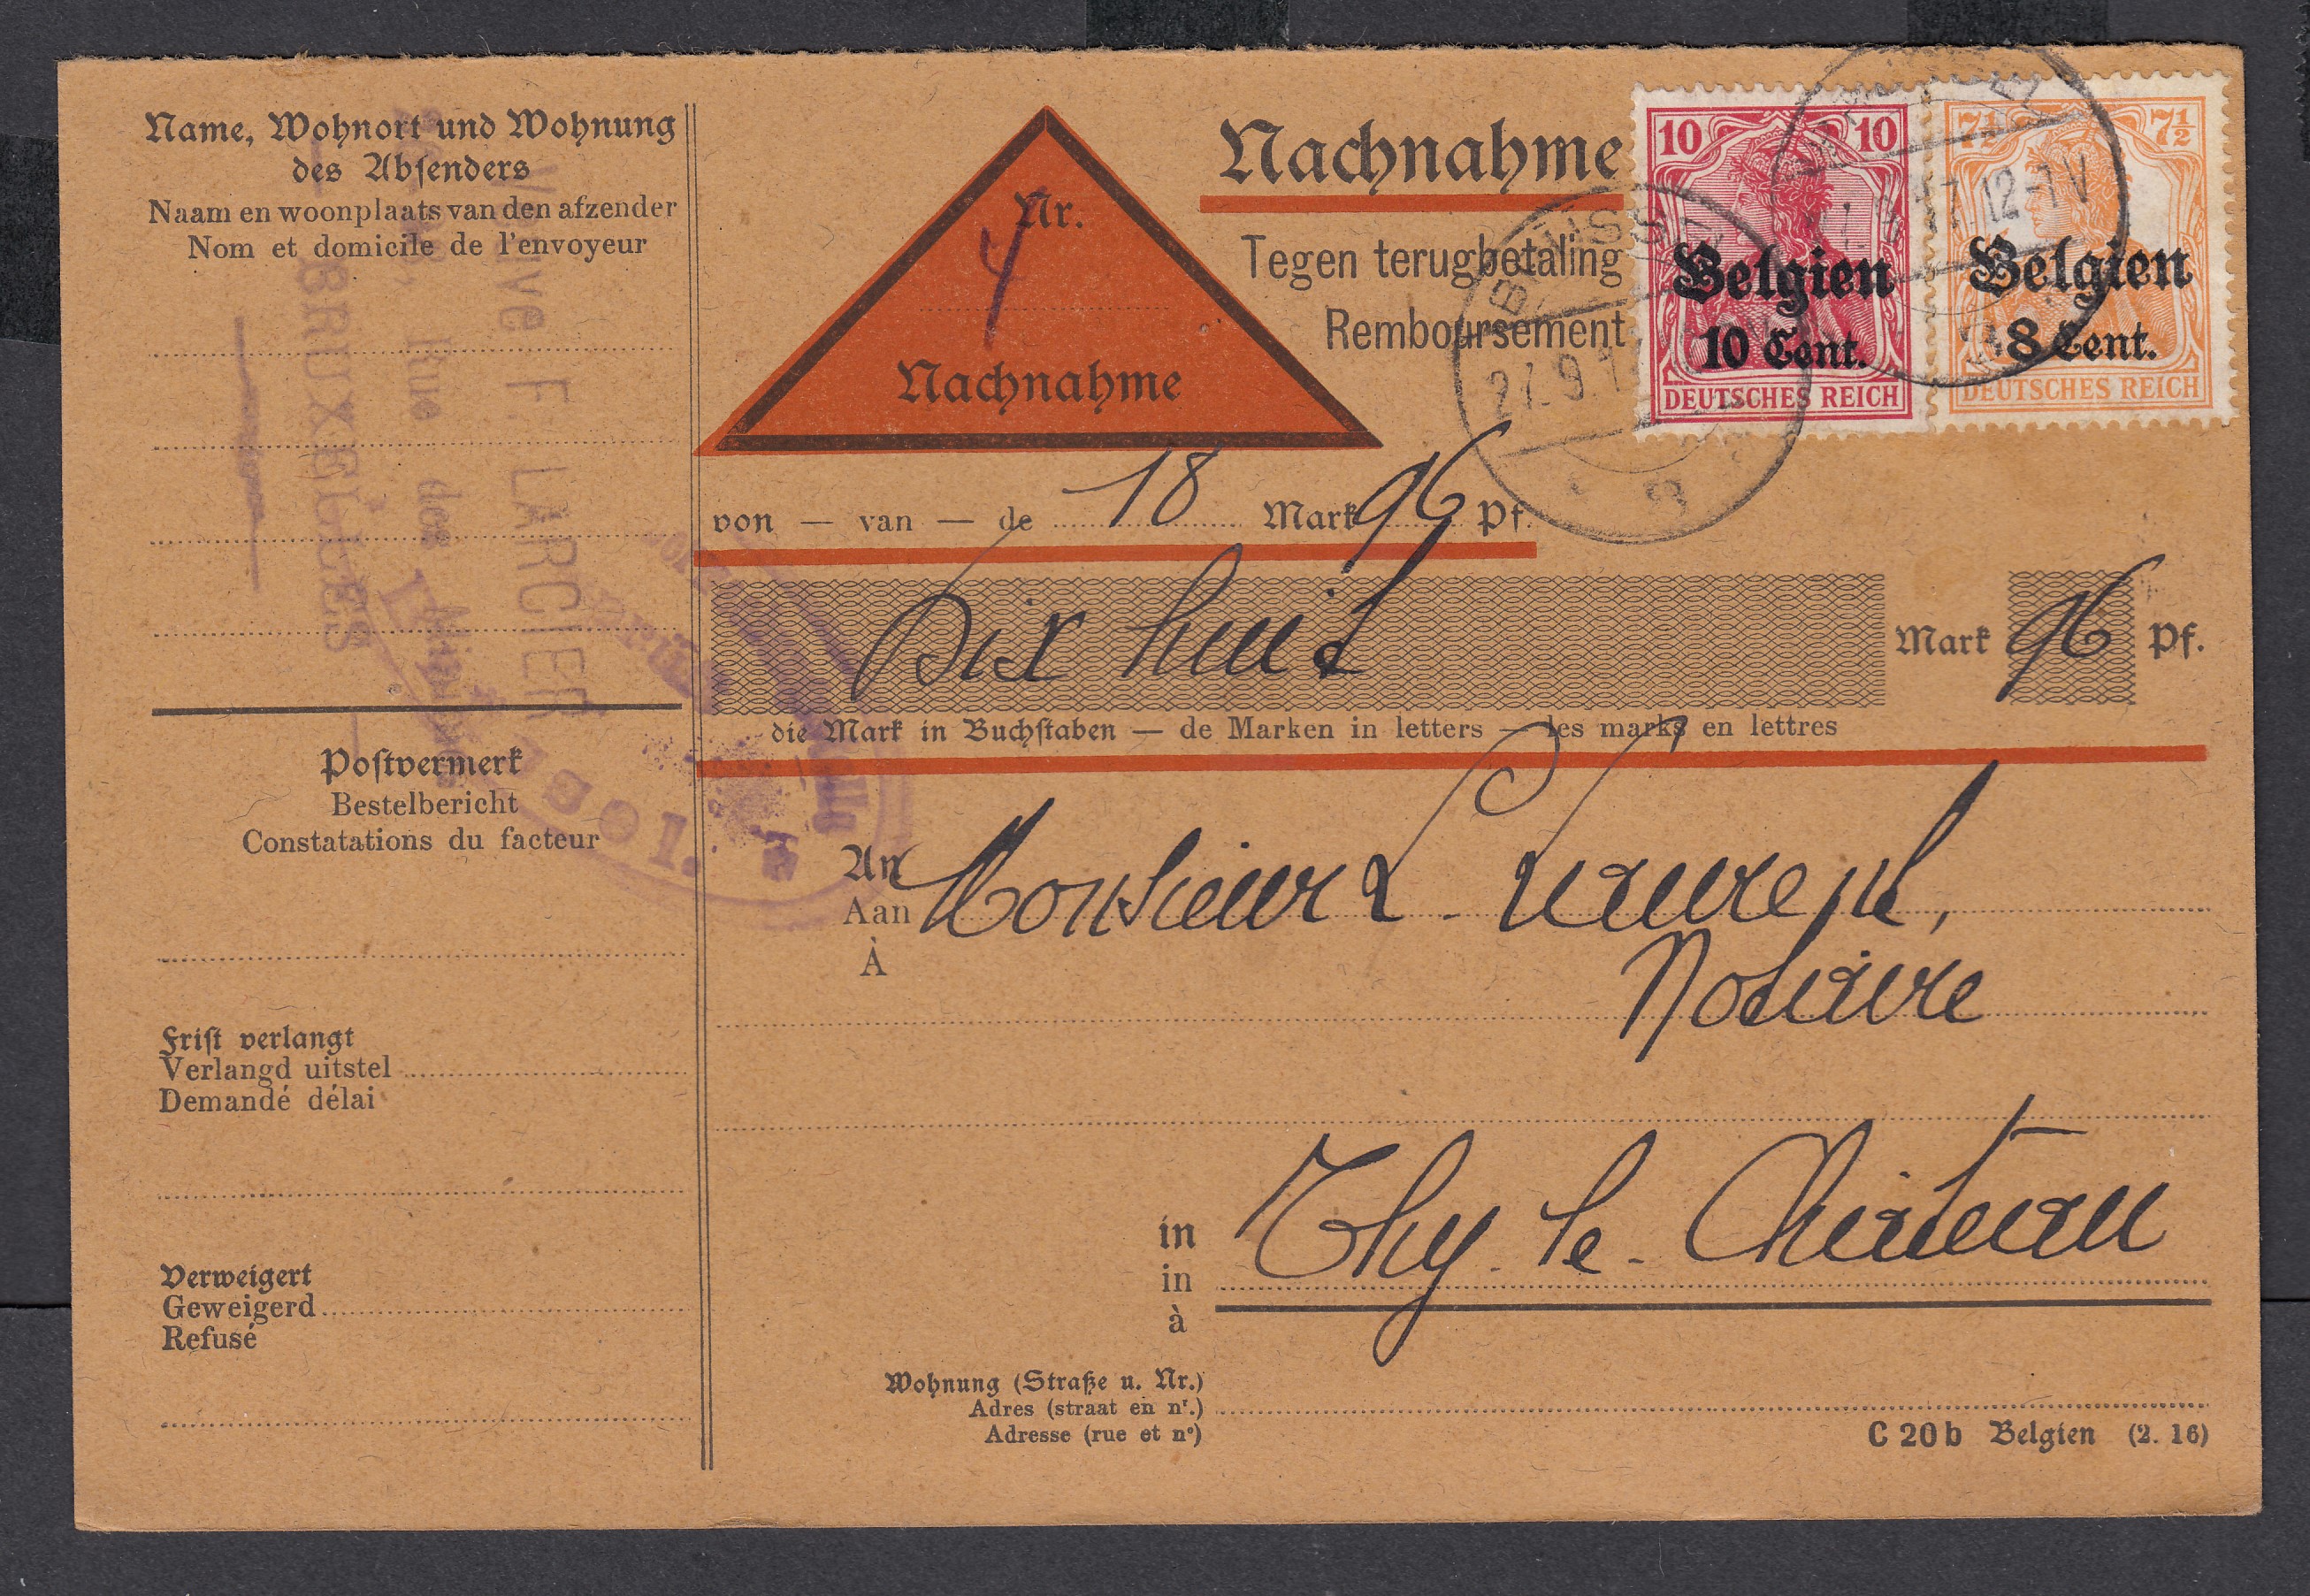 Name, Wohnort und Wohnung
des Absenders
Naam en woonplaats van den afzender
Nom et domicile de l'envoyeur
Veuve F. LARCIER
Rue des Minimes
BRUXELLES
Postvermerk
Bestelbericht
Constatations du facteur
Frist verlangt
Verlangd uitstel
Demandé délai
Verweigert
Geweigerd
Refusé
Nr.
Nachnahme
Nachnahme
Tegen terugbetaling
Remboursement
10 10
Belgien
10 Cent.
DEUTSCHES REICH
7½ 7½
Belgien
8 Cent.
DEUTSCHES REICH
12-1 V
BRÜSSEL
27.9.1
von — van — de 18 Mark 96 Pf.
Dix huit Mark 96 Pf.
die Mark in Buchstaben — de Marken in letters — les marks en lettres
An
Aan
À
Monsieur L.
Notaire
in
in
à
Thy-le-Château
Wohnung (Straße u. Nr.)
Adres (straat en nr.)
Adresse (rue et n°)
C 20 b Belgien (2. 16)